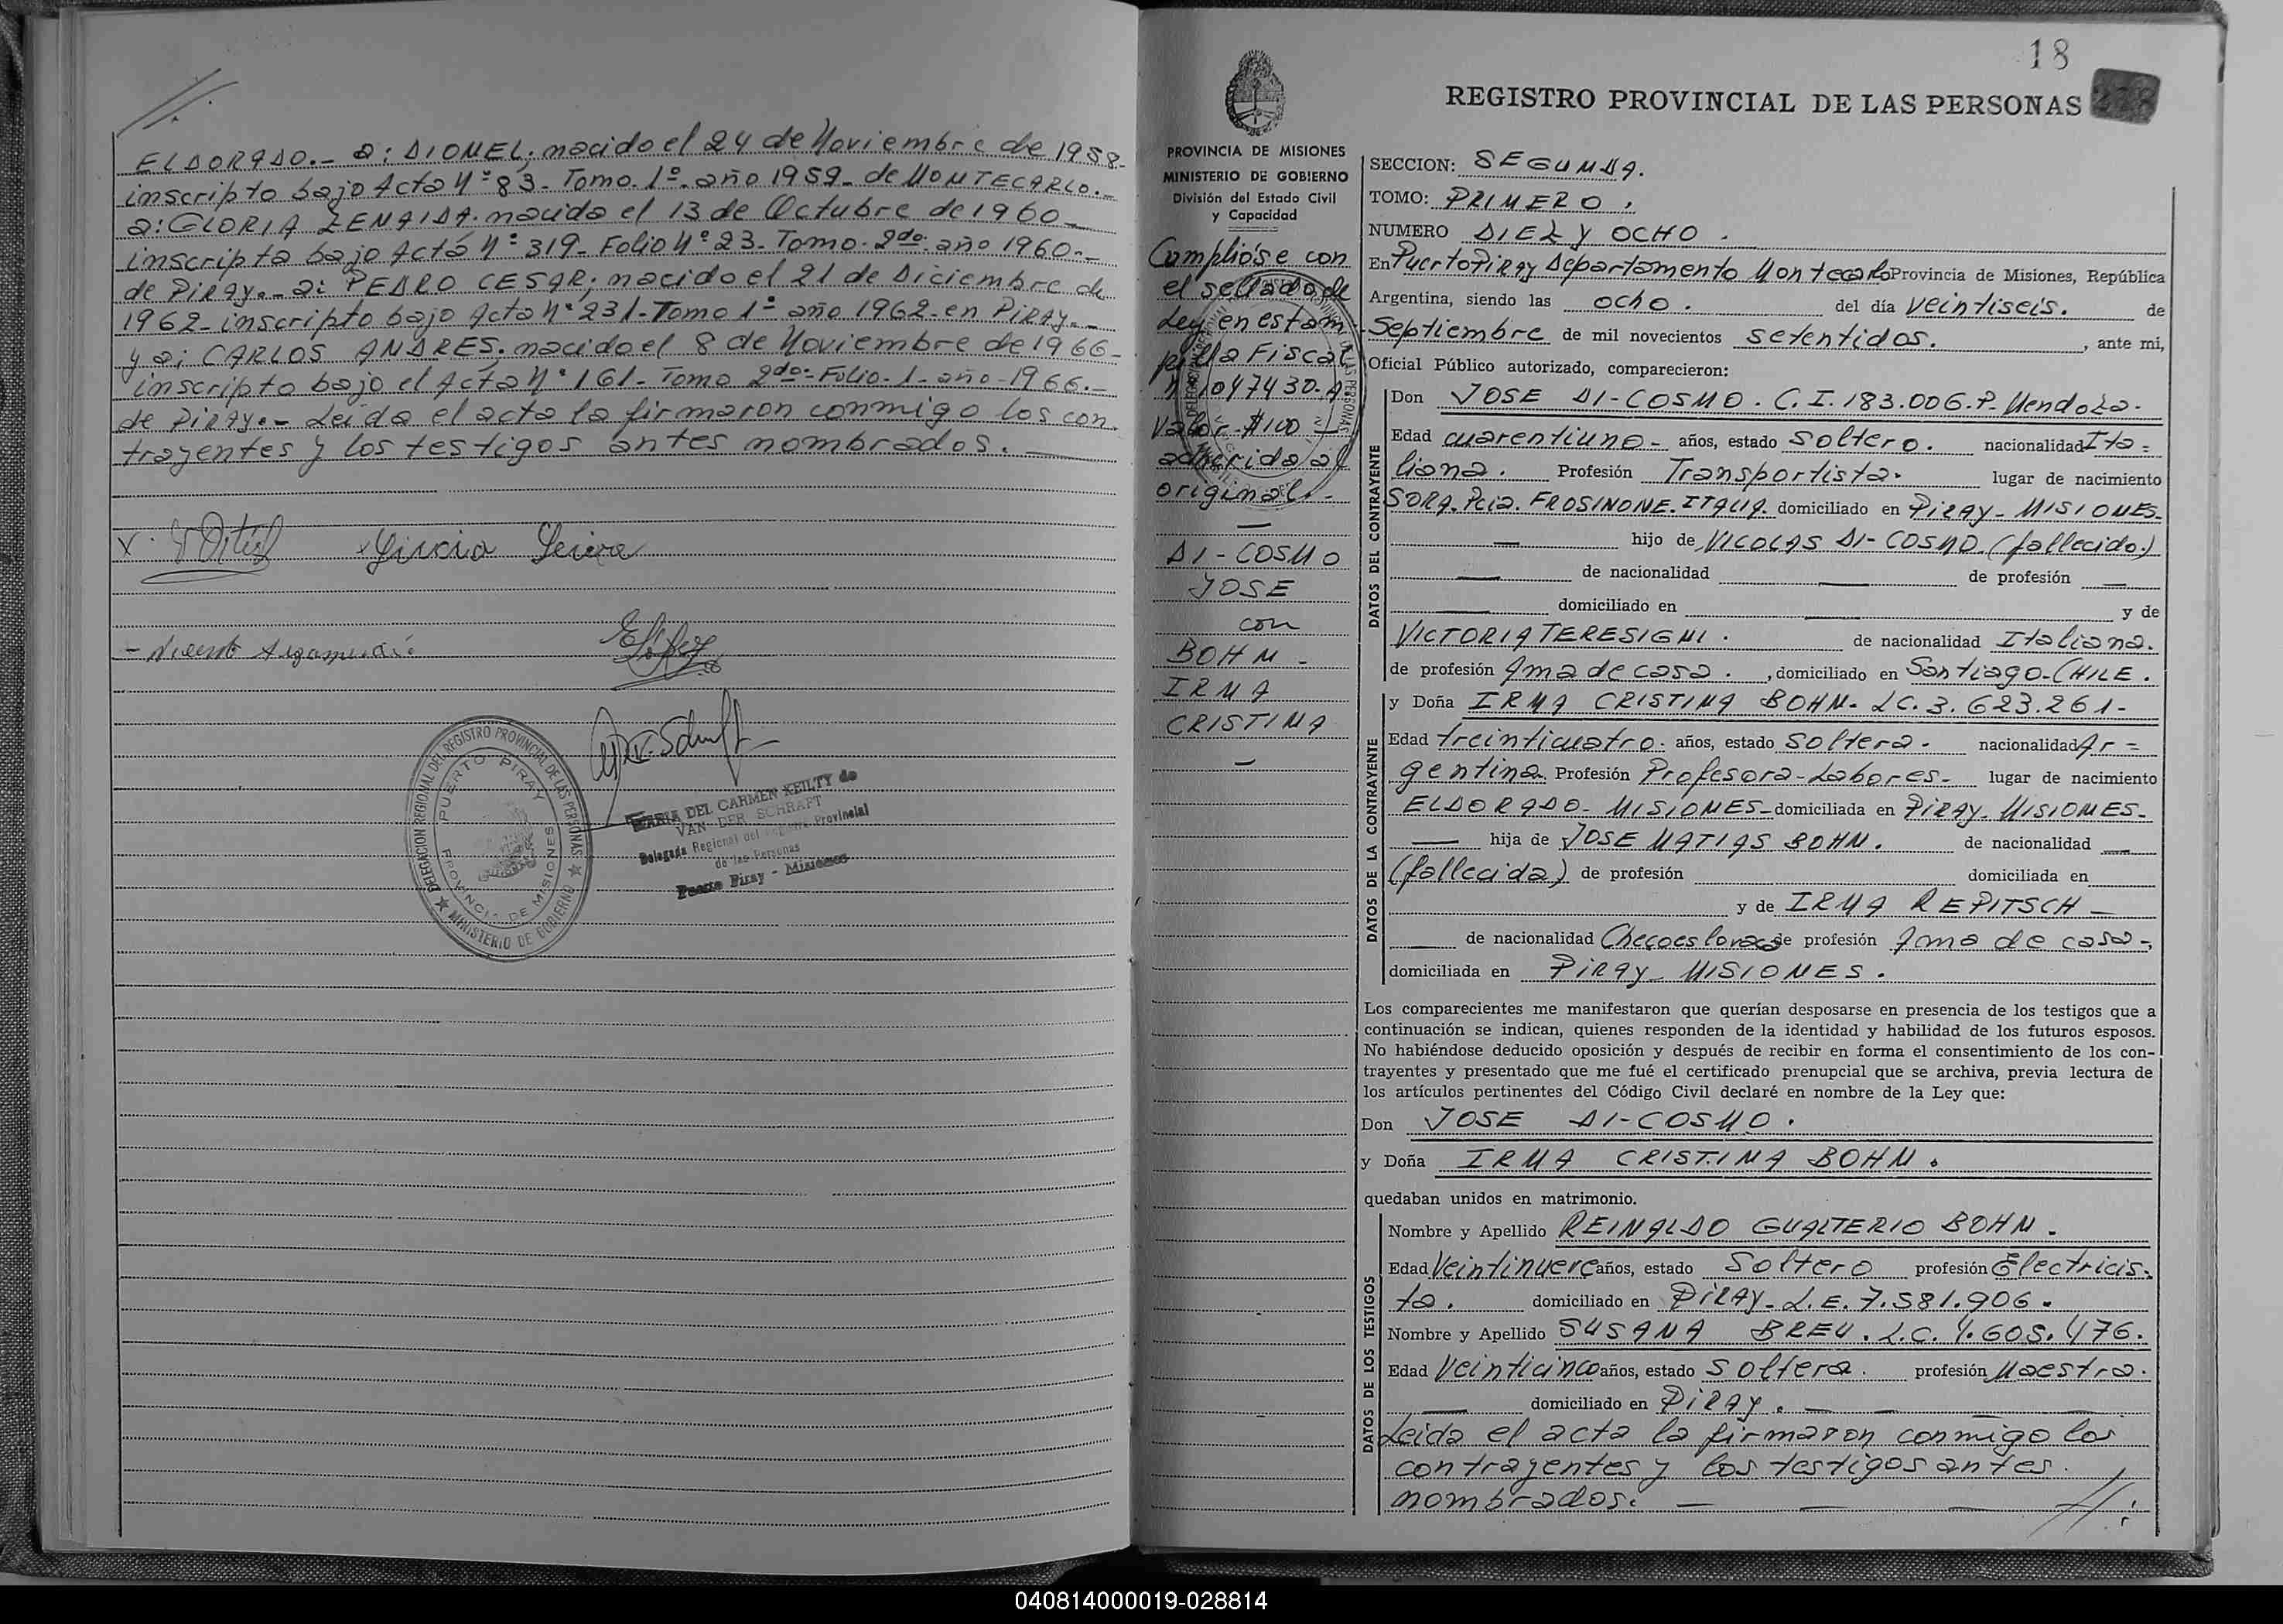 ELDORADO.- a: DIONEL; nacido el 24 de Noviembre de 1958.-
inscripto bajo Acta Nº 83- Tomo. 1º- año 1959- de MONTECARLO.-
a: GLORIA ZENAIDA. nacida el 13 de Octubre de 1960-
inscripta bajo Acta Nº 319- Folio Nº 23- Tomo- 2do- año 1960.-
de Piray.- a: PEDRO CESAR; nacido el 21 de Diciembre de
1962- inscripto bajo Acta Nº 231- Tomo 1º año 1962- en PIRAY.-
y a: CARLOS ANDRES. nacido el 8 de Noviembre de 1966-
inscripto bajo el Acta Nº 161- Tomo 2do- Folio- 1- año- 1966.-
de Piray.- Leida el acta la firmaron conmigo los con
trayentes y los testigos antes nombrados.
DELEGACION REGIONAL DEL REGISTRO PROVINCIAL DE LAS PERSONAS
MINISTERIO DE GOBIERNO
PUERTO PIRAY
PROVINCIA DE MISIONES
MARIA DEL CARMEN KEILTY de
VAN DER SCHRAFT
Delegada Regional del Registro Provincial
de las Personas
Puerto Piray - Misiones
18
REGISTRO PROVINCIAL DE LAS PERSONAS
PROVINCIA DE MISIONES
MINISTERIO DE GOBIERNO
División del Estado Civil
y Capacidad
Cumplióse con
el sellado de
Ley en estam
pilla Fiscal
Nº 1047430-A
Valor $100
adherida al
original.-
DI-COSMO
JOSE
con
BOHN-
IRMA
CRISTINA
SECCION: SEGUNDA.
TOMO: PRIMERO.
NUMERO DIEZ Y OCHO.
En Puerto Piray Departamento Montecarlo Provincia de Misiones, República
Argentina, siendo las ocho. del día veintiseis. de
Septiembre de mil novecientos setentidos. , ante mi,
Oficial Público autorizado, comparecieron:
DATOS DEL CONTRAYENTE
Don JOSE DI-COSMO. C.I. 183.006. P- Mendoza.
Edad cuarentiuno- años, estado soltero. nacionalidad Ita=
liana. Profesión Transportista. lugar de nacimiento
SORA. Pcia. FROSINONE. ITALIA. domiciliado en Piray- MISIONES-
hijo de NICOLAS DI-COSMO. (fallecido.)
de nacionalidad de profesión
domiciliado en y de
VICTORIA TERESIGNI. de nacionalidad Italiana.
de profesión Ama de casa. , domiciliado en Santiago-CHILE.
DATOS DE LA CONTRAYENTE
y Doña IRMA CRISTINA BOHN- LC. 3.623.261-
Edad treinticuatro. años, estado soltera. nacionalidad Ar=
gentina. Profesión Profesora-Labores- lugar de nacimiento
ELDORADO- MISIONES- domiciliada en Piray. MISIONES-
hija de JOSE MATIAS BOHN. de nacionalidad
(fallecida) de profesión domiciliada en
y de IRMA REPITSCH
de nacionalidad Checoeslovaca de profesión Ama de casa-,
domiciliada en Piray- MISIONES.
Los comparecientes me manifestaron que querían desposarse en presencia de los testigos que a
continuación se indican, quienes responden de la identidad y habilidad de los futuros esposos.
No habiéndose deducido oposición y después de recibir en forma el consentimiento de los con-
trayentes y presentado que me fué el certificado prenupcial que se archiva, previa lectura de
los artículos pertinentes del Código Civil declaré en nombre de la Ley que:
Don JOSE DI-COSMO.
y Doña IRMA CRISTINA BOHN.
quedaban unidos en matrimonio.
DATOS DE LOS TESTIGOS
Nombre y Apellido REINALDO GUALTERIO BOHN.
Edad Veintinueve años, estado Soltero profesión Electricis-
ta. domiciliado en Piray- L.E. 7.581.906.
Nombre y Apellido SUSANA BREU. L.C. 4.605.476.
Edad Veinticinco años, estado soltera. profesión Maestra.
domiciliado en Piray.
Leida el acta la firmaron conmigo los
contrayentes y los testigos antes
nombrados.
040814000019-028814